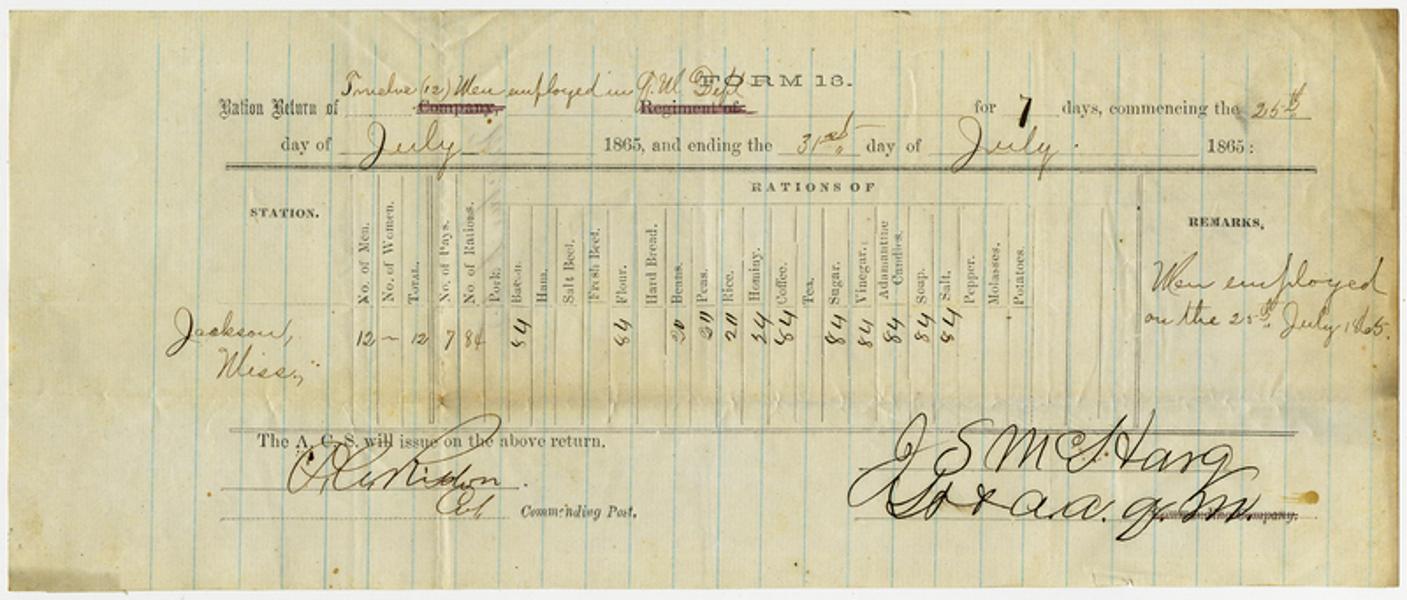 FORM 13.
Twelve (12) Men employed in Q. M. Dept
Ration Return of Company, Regiment of for 7 days, commencing the 25th
day of July 1865, and ending the 31st day of July 1865:
RATIONS OF
STATION. No. of Men. No. of Women. TOTAL. No. of Days. No. of Rations. Pork. Bacon. Ham. Salt Beef. Fresh Beef. Flour. Hard Bread. Beans. Peas. Rice. Hominy. Coffee. Tea. Sugar. Vinegar. Adamantine Candles. Soap. Salt. Pepper. Molasses. Potatoes. REMARKS,
Jackson, 12 – 12 7 84 84 84 20 84 84 84 84 84 84 Men employed
Miss., on the 25th July 1865.
The A. C. S. will issue on the above return.
J S McHarg
Col Commending Post.
Lt & a.a. q. M. Company.